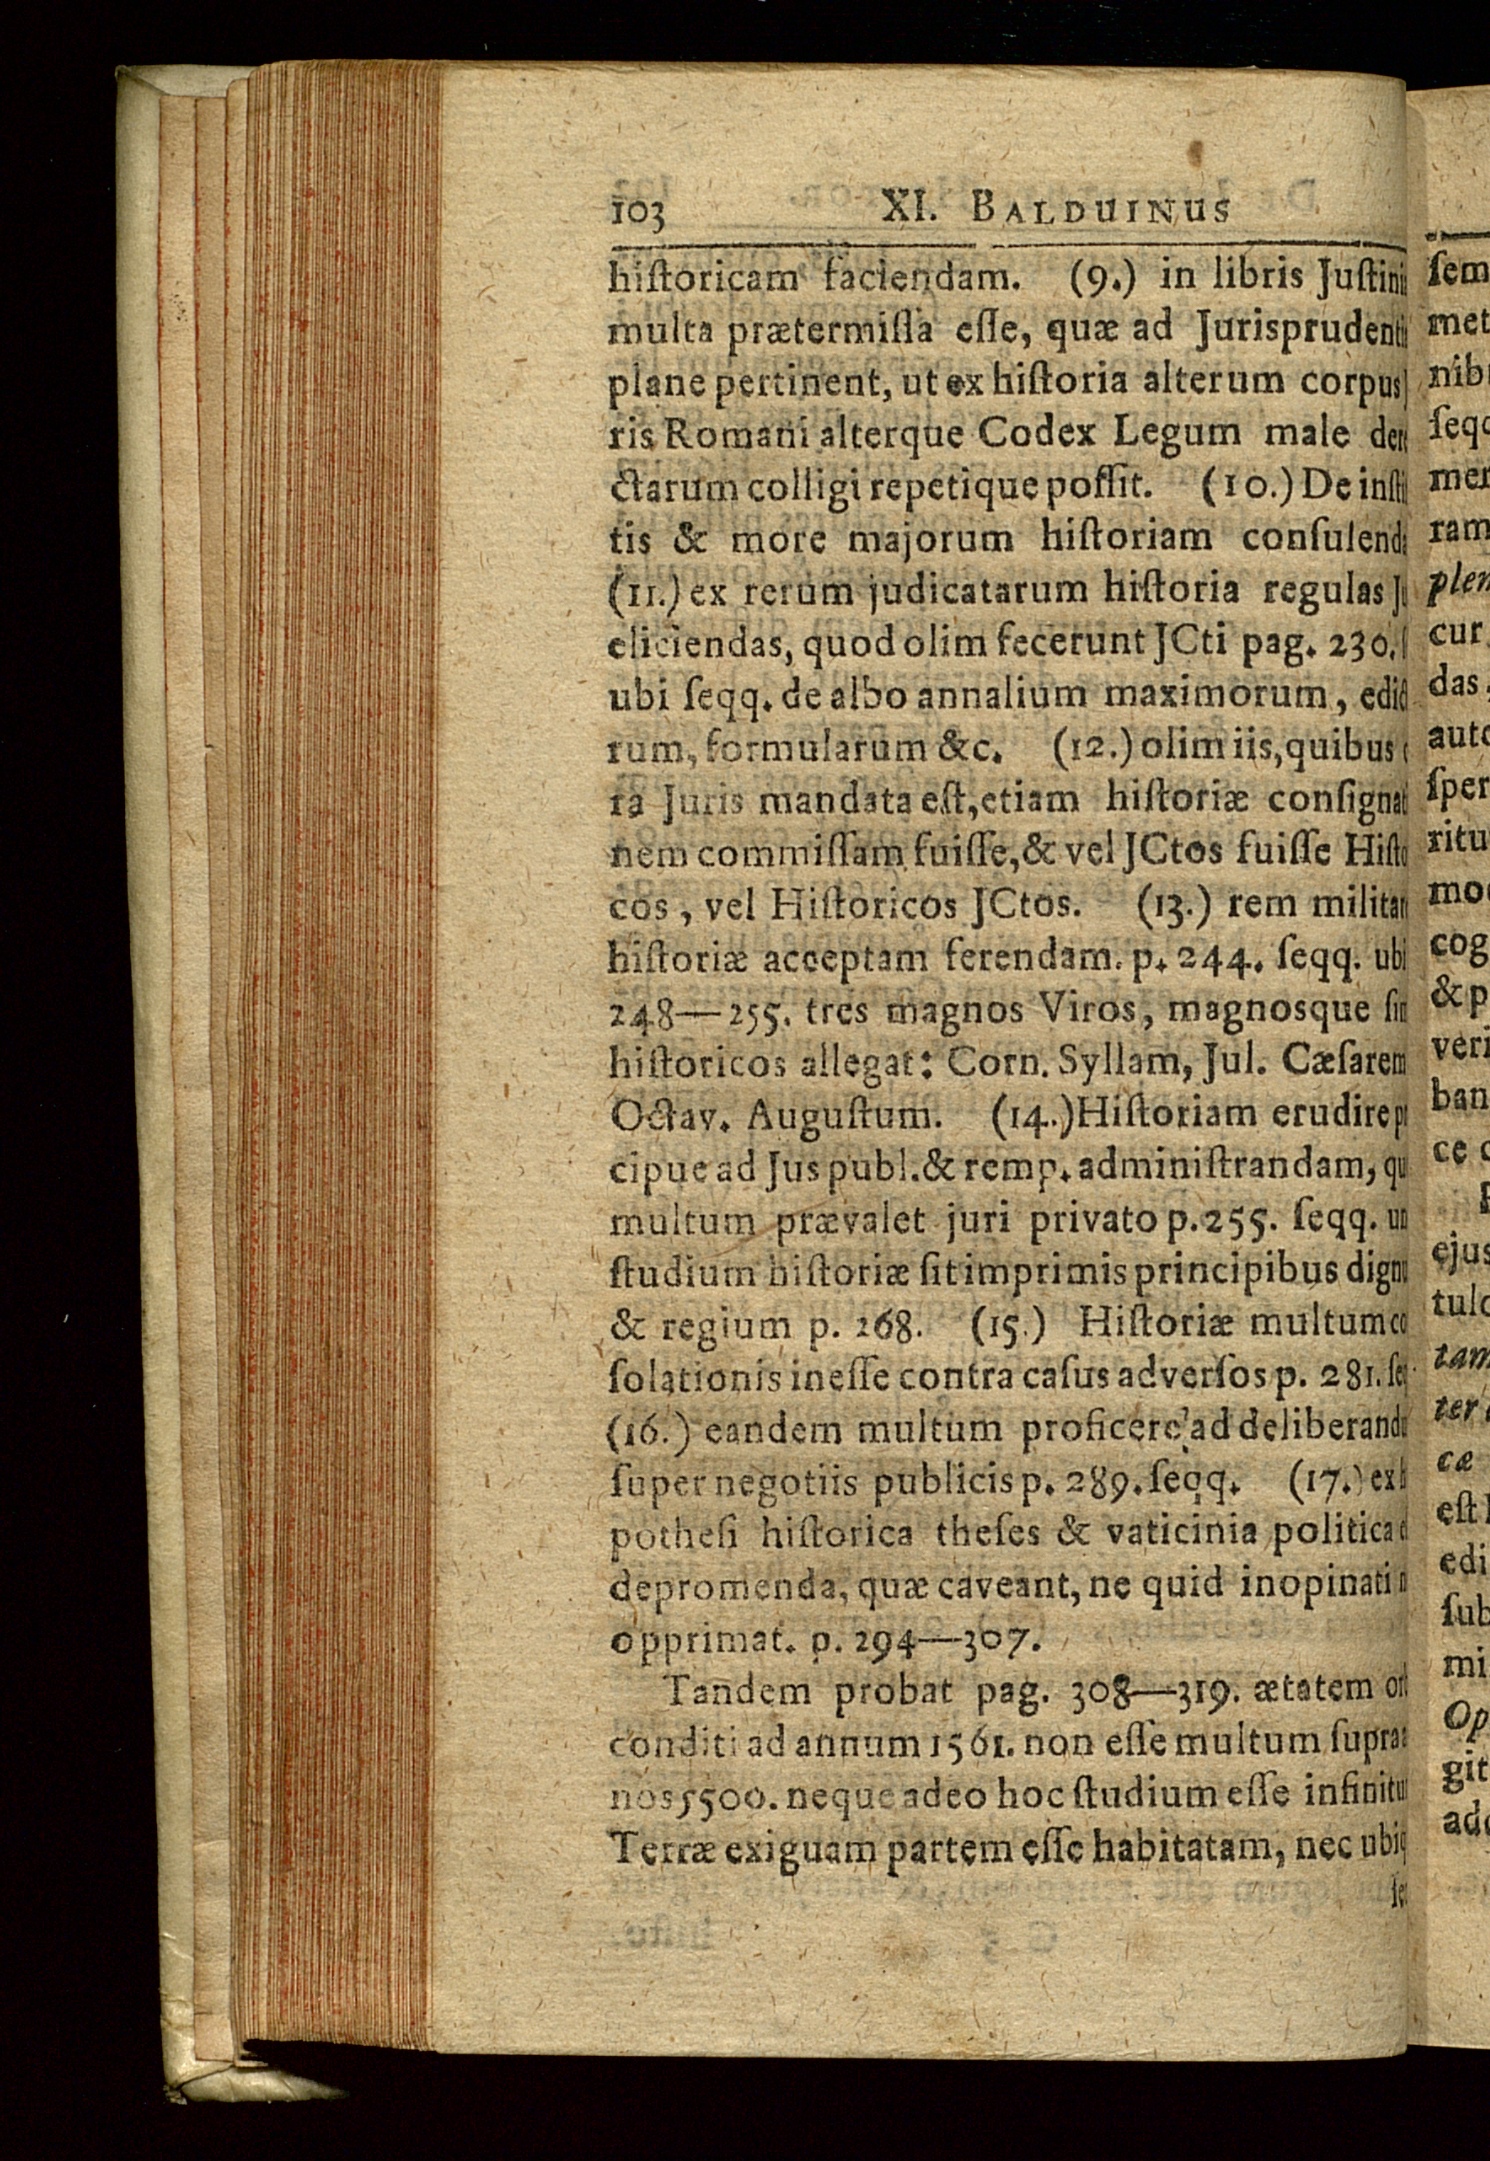 103 XI. BALDUINUS
hiſtoricam faciendam. (9.) in libris Juſtini
multa prætermiſſa eſſe, quæ ad Jurisprudenti
plane pertinent, ut ex hiſtoria alterum corpus J
ris Romani alterque Codex Legum male dere
ctarum colligi repetique poſſit. (10.) De inſti
tis & more majorum hiſtoriam conſulend
(11.) ex rerum judicatarum hiſtoria regulas Ju
eliciendas, quod olim fecerunt JCti pag. 230. ſ
ubi ſeqq. de albo annalium maximorum, edict
rum, formularum &c. (12.) olim iis, quibus c
ra Juris mandata eſt, etiam hiſtoriæ conſignati
nem commiſſam fuiſſe, & vel JCtos fuiſſe Hiſto
cos, vel Hiſtoricos JCtos. (13.) rem militar
hiſtoriæ acceptam ferendam. p. 244. ſeqq. ubi
248—255. tres magnos Viros, magnosque ſim
hiſtoricos allegat: Corn. Syllam, Jul. Cæſarem
Octav. Auguſtum. (14.) Hiſtoriam erudire pr
cipue ad Jus publ. & remp. adminiſtrandam, qu
multum prævalet juri privato p. 255. ſeqq. un
ſtudium hiſtoriæ ſit imprimis principibus dignu
& regium p. 268. (15.) Hiſtoriæ multum co
ſolationis ineſſe contra caſus adverſos p. 281. ſeq
(16.) eandem multum proficere ad deliberandu
ſuper negotiis publicis p. 289. ſeqq. (17.) ex h
potheſi hiſtorica theſes & vaticinia politica e
depromenda, quæ caveant, ne quid inopinati n
opprimat. p. 294—307.
Tandem probat pag. 308—319. ætatem orb
conditi ad annum 1561. non eſſe multum ſupra a
nos 5500. neque adeo hoc ſtudium eſſe infinitu
Terræ exiguam partem eſſe habitatam, nec ubiq
ſem
met
nib
ſeq
mer
ram
plen
cur
das,
aut
ſper
ritu
mo
cog
& p
veri
ban
ce
ejus
tul
tam
ter
cæ
eſt
edi
ſub
mi
Op
git
ad